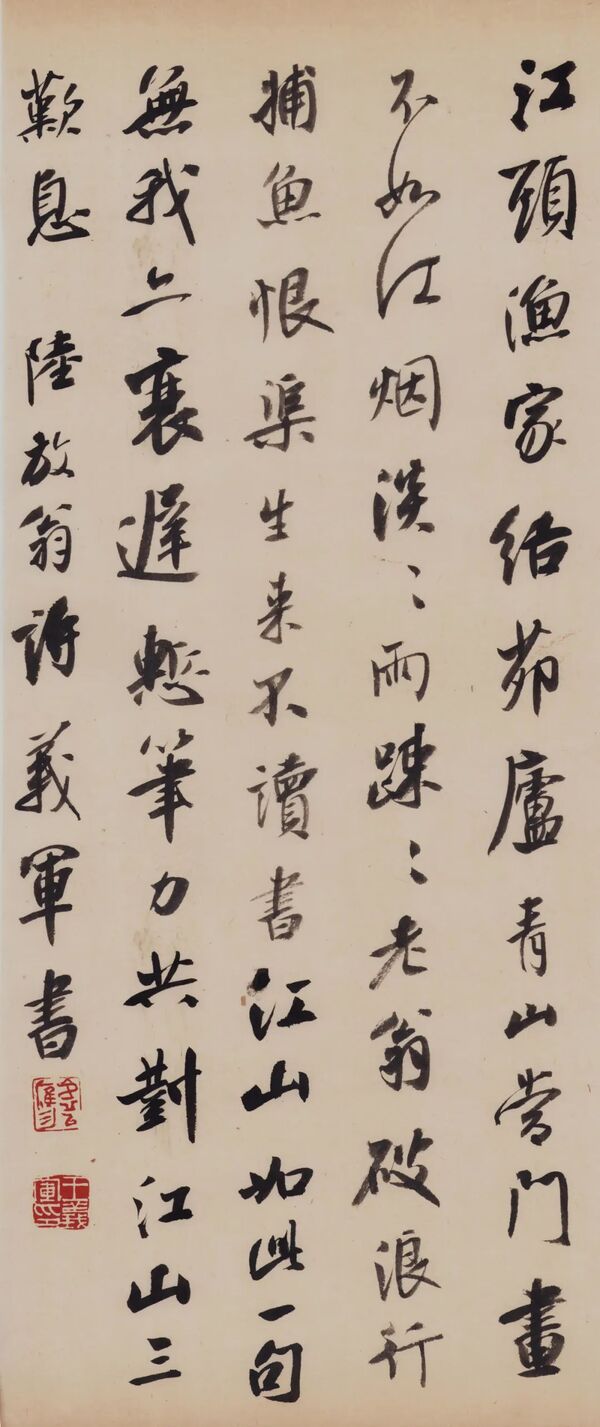 江頭漁家結茆廬青山當門畫
不如江烟淡〻雨疎〻老翁破浪行
捕魚恨渠生來不讀書江山如此一句
無我亦衰遲慙筆力共對江山三
歎息 陸放翁詩 義軍書